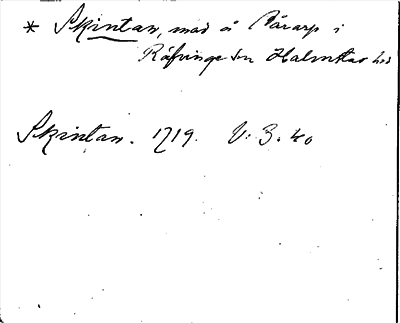 * Skintan, mad å Pårarp i
Räfvinge sn Halmstad hd
Skintan. 1719. V: 3. 40